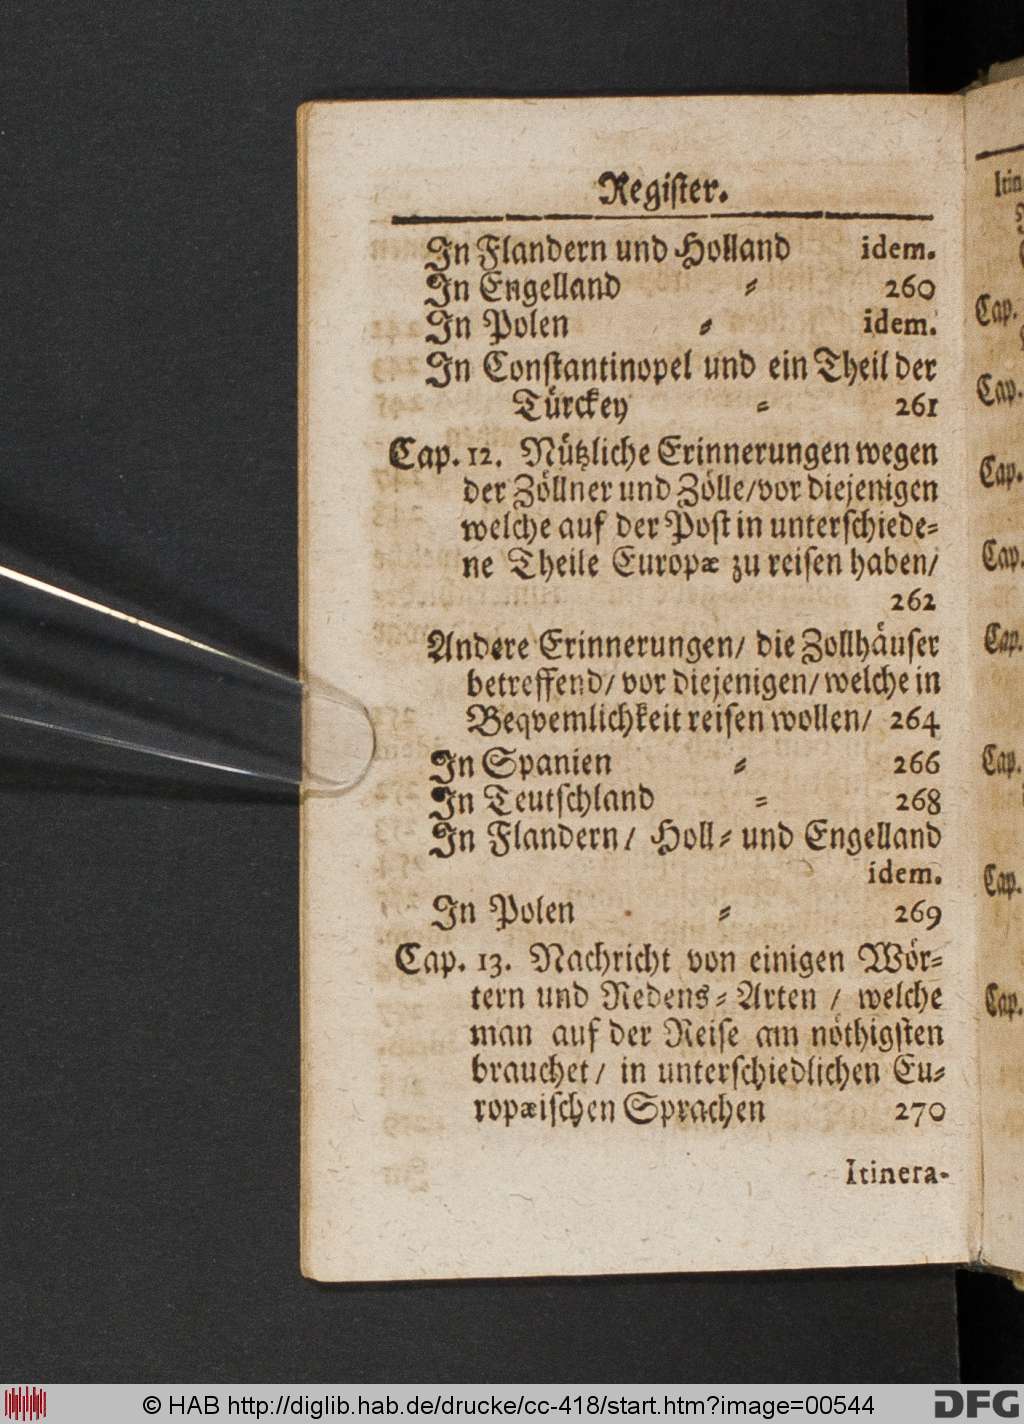 Register.
In Flandern und Holland idem.
In Engelland ⸗ 260
In Polen ⸗ idem.
In Constantinopel und ein Theil der
Türckey ⸗ 261
Cap. 12. Nützliche Erinnerungen wegen
der Zöllner und Zölle/vor diejenigen
welche auf der Post in unterschiede⸗
ne Theile Europæ zu reisen haben/
262
Andere Erinnerungen/ die Zollhäuser
betreffend/ vor diejenigen/ welche in
Beqvemlichkeit reisen wollen/ 264
In Spanien ⸗ 266
In Teutschland ⸗ 268
In Flandern/ Holl⸗ und Engelland
idem.
In Polen ⸗ 269
Cap. 13. Nachricht von einigen Wör⸗
tern und Redens⸗Arten / welche
man auf der Reise am nöthigsten
brauchet/ in unterschiedlichen Eu⸗
ropæischen Sprachen 270
Itinera-
Itin
Cap.
Cap.
Cap.
Cap.
Cap.
Cap.
Cap.
Cap.
© HAB http://diglib.hab.de/drucke/cc-418/start.htm?image=00544
DFG